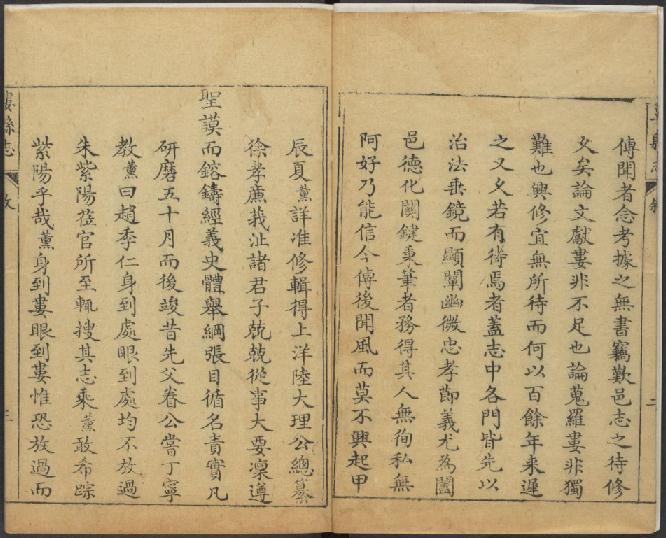 傅聞者念考據之無書竊歎邑志之待修
久矣論文獻婁非不足也論蒐羅婁非獨
難也興修宜無所待而何以百餘年來遲
之又久若有待焉者蓋志中各門皆先以
治法垂鏡而顯闡幽微忠孝節義尤為閨
邑德化關鍵秉筆者務得其人無徇私無
阿好乃能信今傳後聞風而莫不興起甲
辰夏薰詳准修輯得上洋陸大理公總纂
徐孝廉莪沚諸君子兢兢從事大要凜遵
聖謨而鎔鑄經義史體舉綱張目循名責實凡
研磨五十月而後竣昔先父眷公嘗丁寧
教薰曰趙季仁身到處眼到處均不放過
朱紫陽蒞官所至輒搜其志乘薰敢希踪
紫陽乎哉薰身到婁眼到婁惟恐放過而
婁縣志
三
二